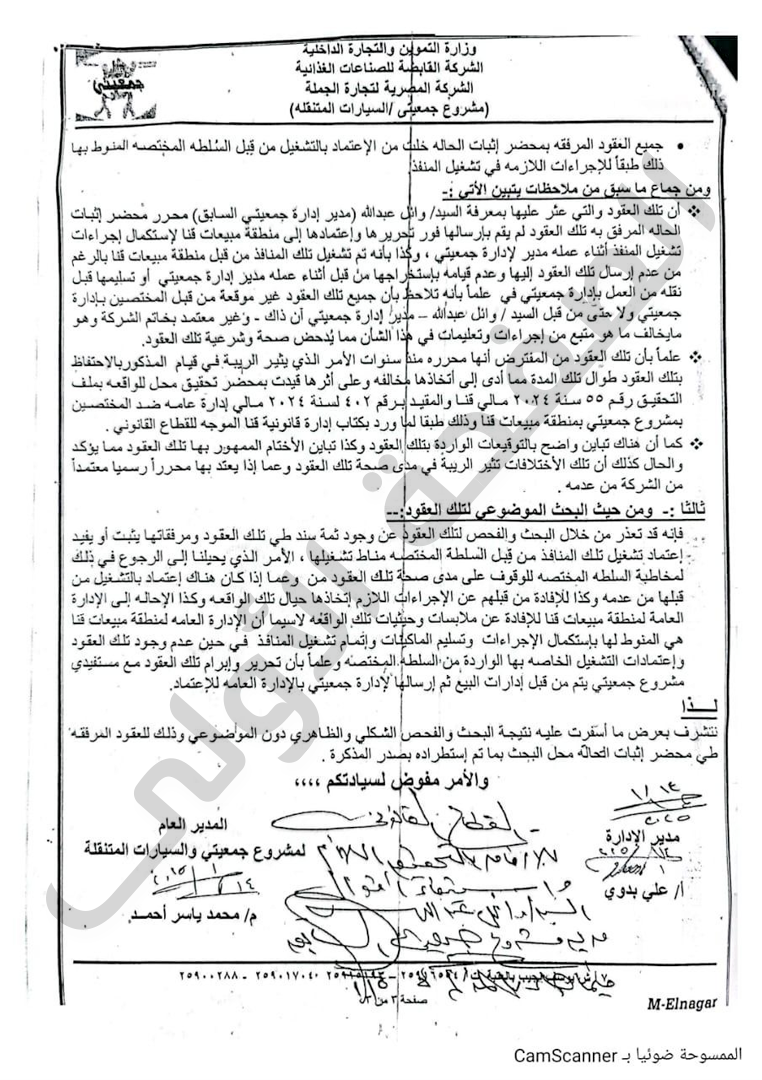 وزارة التموين والتجارة الداخلية
الشركة القابضة للصناعات الغذائية
الشركة المصرية لتجارة الجملة
(مشروع جمعيتي /السيارات المتنقله)
جمعيتي
• جميع العقود المرفقه بمحضر إثبات الحاله خلت من الإعتماد بالتشغيل من قبل السلطه المختصه المنوط بها
ذلك طبقاً للإجراءات اللازمه في تشغيل المنفذ
ومن جماع ما سبق من ملاحظات يتبين الأتي :-
❖ أن تلك العقود والتي عثر عليها بمعرفة السيد/ وائل عبدالله (مدير إدارة جمعيتي السابق) محرر محضر إثبات
الحاله المرفق به تلك العقود لم يقم بإرسالها فور تحريرها وإعتمادها إلى منطقة مبيعات قنا لإستكمال إجراءات
تشغيل المنفذ أثناء عمله مدير لإدارة جمعيتي ، وكذا بأنه تم تشغيل تلك المنافذ من قبل منطقة مبيعات قنا بالرغم
من عدم إرسال تلك العقود إليها وعدم قيامه بإستخراجها من قبل أثناء عمله مدير إدارة جمعيتي أو تسليمها قبل
نقله من العمل بإدارة جمعيتي في علماً بأنه تلاحظ بأن جميع تلك العقود غير موقعة من قبل المختصين بإدارة
جمعيتي ولا حتى من قبل السيد / وائل عبدالله – مدير إدارة جمعيتي أن ذاك - وغير معتمد بخاتم الشركة وهو
مايخالف ما هو متبع من إجراءات وتعليمات في هذا الشأن مما يُدحض صحة وشرعية تلك العقود.
❖ علماً بأن تلك العقود من المفترض أنها محرره منذ سنوات الأمر الذي يثير الريبة في قيام المذكوربالاحتفاظ
بتلك العقود طوال تلك المدة مما أدى إلى أتخاذها مخالفه وعلى أثرها قيدت بمحضر تحقيق محل للواقعه بملف
التحقيق رقم ٥٥ سنة ٢٠٢٤ مالي قنا والمقيد برقم ٤٠٢ لسنة ٢٠٢٤ مالي إدارة عامه ضد المختصين
بمشروع جمعيتي بمنطقة مبيعات قنا وذلك طبقا لما ورد بكتاب إدارة قانونية قنا الموجه للقطاع القانوني .
❖ كما أن هناك تباين واضح بالتوقيعات الواردة بتلك العقود وكذا تباين الأختام الممهور بها تلك العقود مما يؤكد
والحال كذلك أن تلك الأختلافات تثير الريبة في مدى صحة تلك العقود وعما إذا يعتد بها محرراً رسميا معتمداً
من الشركة من عدمه .
ثالثا :- ومن حيث البحث الموضوعي لتلك العقود:--
فإنه قد تعذر من خلال البحث والفحص لتلك العقود عن وجود ثمة سند طي تلك العقود ومرفقاتها يثبت أو يفيد
إعتماد تشغيل تلك المنافذ من قبل السلطة المختصه مناط تشغيلها ، الأمر الذي يحيلنا إلى الرجوع في ذلك
لمخاطبة السلطه المختصه للوقوف على مدى صحة تلك العقود من وعما إذا كان هناك إعتماد بالتشغيل من
قبلها من عدمه وكذا للإفادة من قبلهم عن الإجراءات اللازم إتخاذها حيال تلك الواقعه وكذا الإحاله إلى الإدارة
العامة لمنطقة مبيعات قنا للإفادة عن ملابسات وحيثيات تلك الواقعه لاسيما أن الإدارة العامه لمنطقة مبيعات قنا
هي المنوط لها بإستكمال الإجراءات وتسليم الماكينات وإتمام تشغيل المنافذ في حين عدم وجود تلك العقود
وإعتمادات التشغيل الخاصه بها الواردة من السلطه المختصه وعلماً بأن تحرير وإبرام تلك العقود مع مستفيدي
مشروع جمعيتي يتم من قبل إدارات البيع ثم إرسالها لإدارة جمعيتي بالإدارة العامه للإعتماد.
لــــذا
نتشرف بعرض ما أسفرت عليه نتيجة البحث والفحص الشكلي والظاهري دون الموضوعي وذلك للعقود المرفقه
طي محضر إثبات الحاله محل البحث بما تم إستطراده بصدر المذكرة .
والأمر مفوض لسيادتكم ،،،،
مدير الإدارة
أ/ علي بدوي
المدير العام
لمشروع جمعيتي والسيارات المتنقلة
م/ محمد ياسر أحمد
القطاع القانوني
صفحة ٣ من ٣
٢٥٩٠١٧٠٤٠ - ٢٥٩٠٠٢٨٨
M-Elnagar
الصفحة الأولى
الممسوحة ضوئيا بـ CamScanner